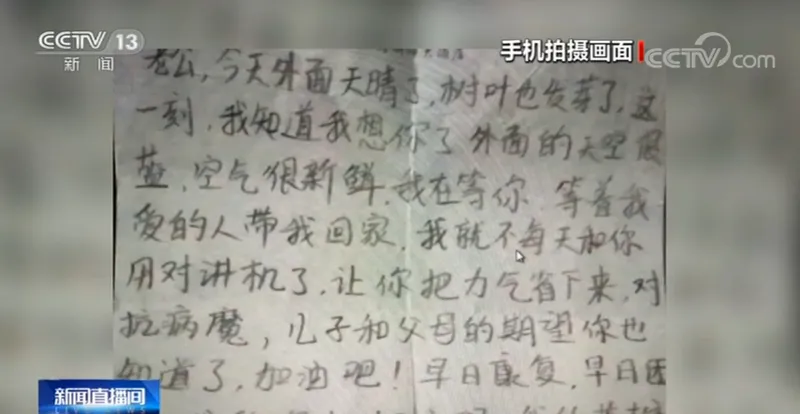 CCTV 13
新闻
手机拍摄画面
CCTV.com
老公,今天外面天晴了,树叶也发芽了,这
一刻,我知道我想你了外面的天空很
蓝,空气很新鲜,我在等你,等着我
爱的人带我回家,我就不每天和你
用对讲机了,让你把力气省下来,对
抗病魔,儿子和父母的期望你也
知道了,加油吧!早日康复,早日团
新闻直播间